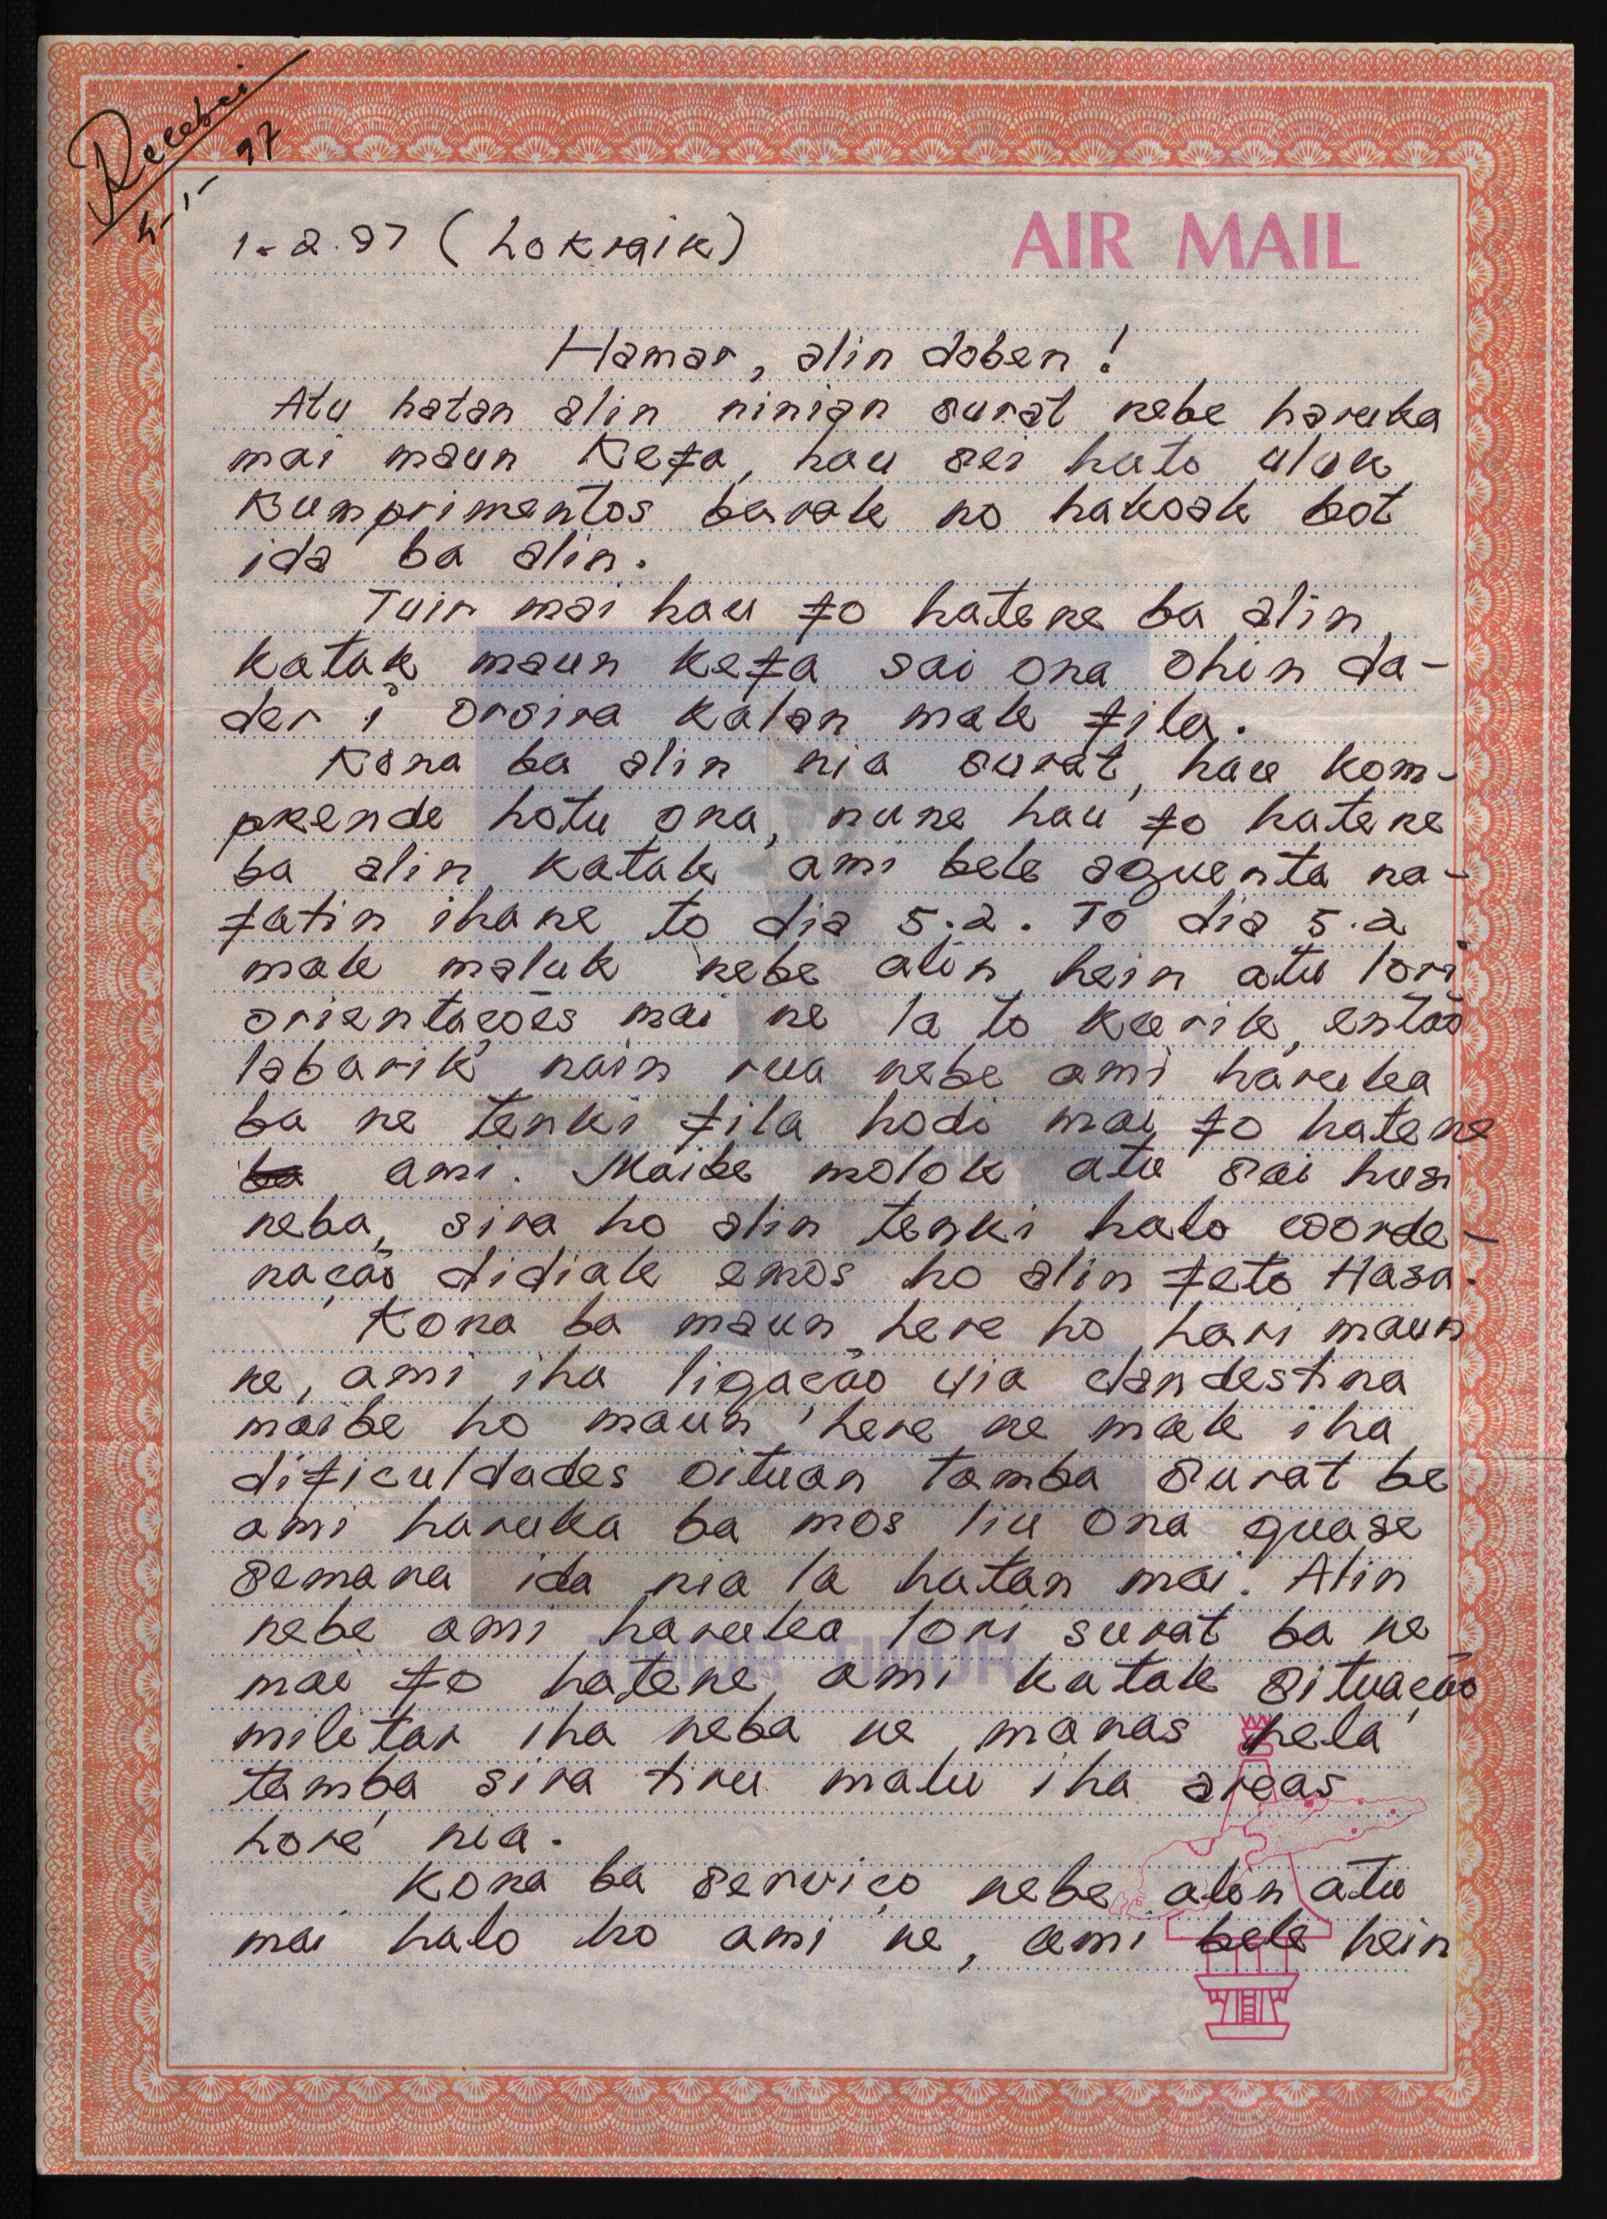 Recebei
5-1-97
1-2.97 (Lokraik)
AIR MAIL
Hamar, alin doben!
Atu hatan alin ninian surat nebe haruka
mai maun Kefa, hau sei hato uluk
Kumprimentos barak no hakoak bot
ida ba alin.
Tuir mai hau fo hatene ba alin
katak maun kefa sai ona ohin da-
der i orsira kalan mak fila.
Kona ba alin nia surat, hau kom-
prende hotu ona, nune hau fo hatene
ba alin katak ami bele aguenta na-
fatin ihane to dia 5.2. To dia 5.2
mak maluk nebe alin hein atu lori
orientações mai ne la to karik, então
labarik nain rua nebe ami haruka
ba ne tenki fila hodi mai fo hatene
ba ami. Maibe molok atu sai husi
neba, sira ho alin tenki halo coorde-
nação didiak emos ho alin feto Hasa.
Kona ba maun here ho hari maun
ne, ami iha ligação via clandestina
maibe ho maun here ne mak iha
dificuldades oituan tamba surat be
ami haruka ba mos liu ona quase
semana ida nia la hatan mai. Alin
nebe ami haruka lori surat ba ne
mai fo hatene ami katak situação
militar iha neba ne manas hela
tamba sira tiru malu iha areas
hore nia.
Kona ba serviço nebe alin atu
mai halo ho ami ne, ami bele hein
TIMOR TIMUR